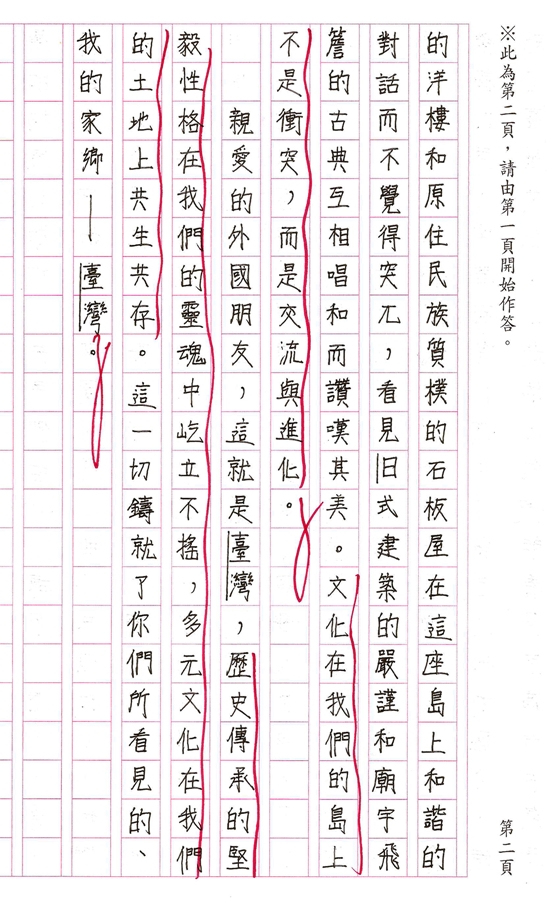 ※此為第二頁，請由第一頁開始作答。
第二頁
的洋樓和原住民族質樸的石板屋在這座島上和諧的
對話而不覺得突兀，看見旧式建築的嚴謹和廟宇飛
簷的古典互相唱和而讚嘆其美。文化在我們的島上
不是衝突，而是交流與進化。
親愛的外國朋友，這就是臺灣，歷史傳承的堅
毅性格在我們的靈魂中屹立不搖，多元文化在我們
的土地上共生共存。這一切鑄就了你們所看見的、
我的家鄉——臺灣。